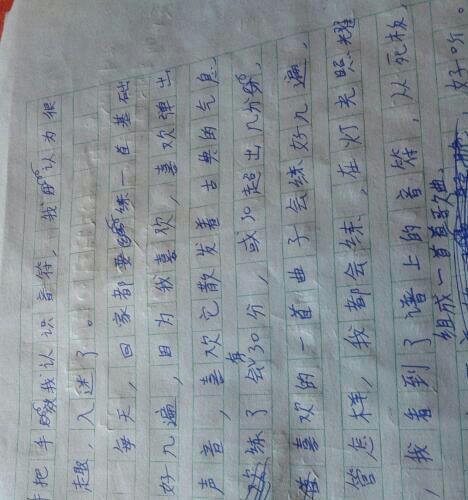 把手教我认识音符，我 认为很
趣，入迷了。
每天，回家都要 练一直基础
好几遍，因为我喜欢，喜欢弹出
声音，喜欢它散发着古典的气息
练了会30分，或30超出几分钟，
喜欢的一首曲子会练好几遍，
管怎样，我都会练，在灯光照耀
，我看到了谱上的音符，从死板，
组成一首首歌曲。
好听。